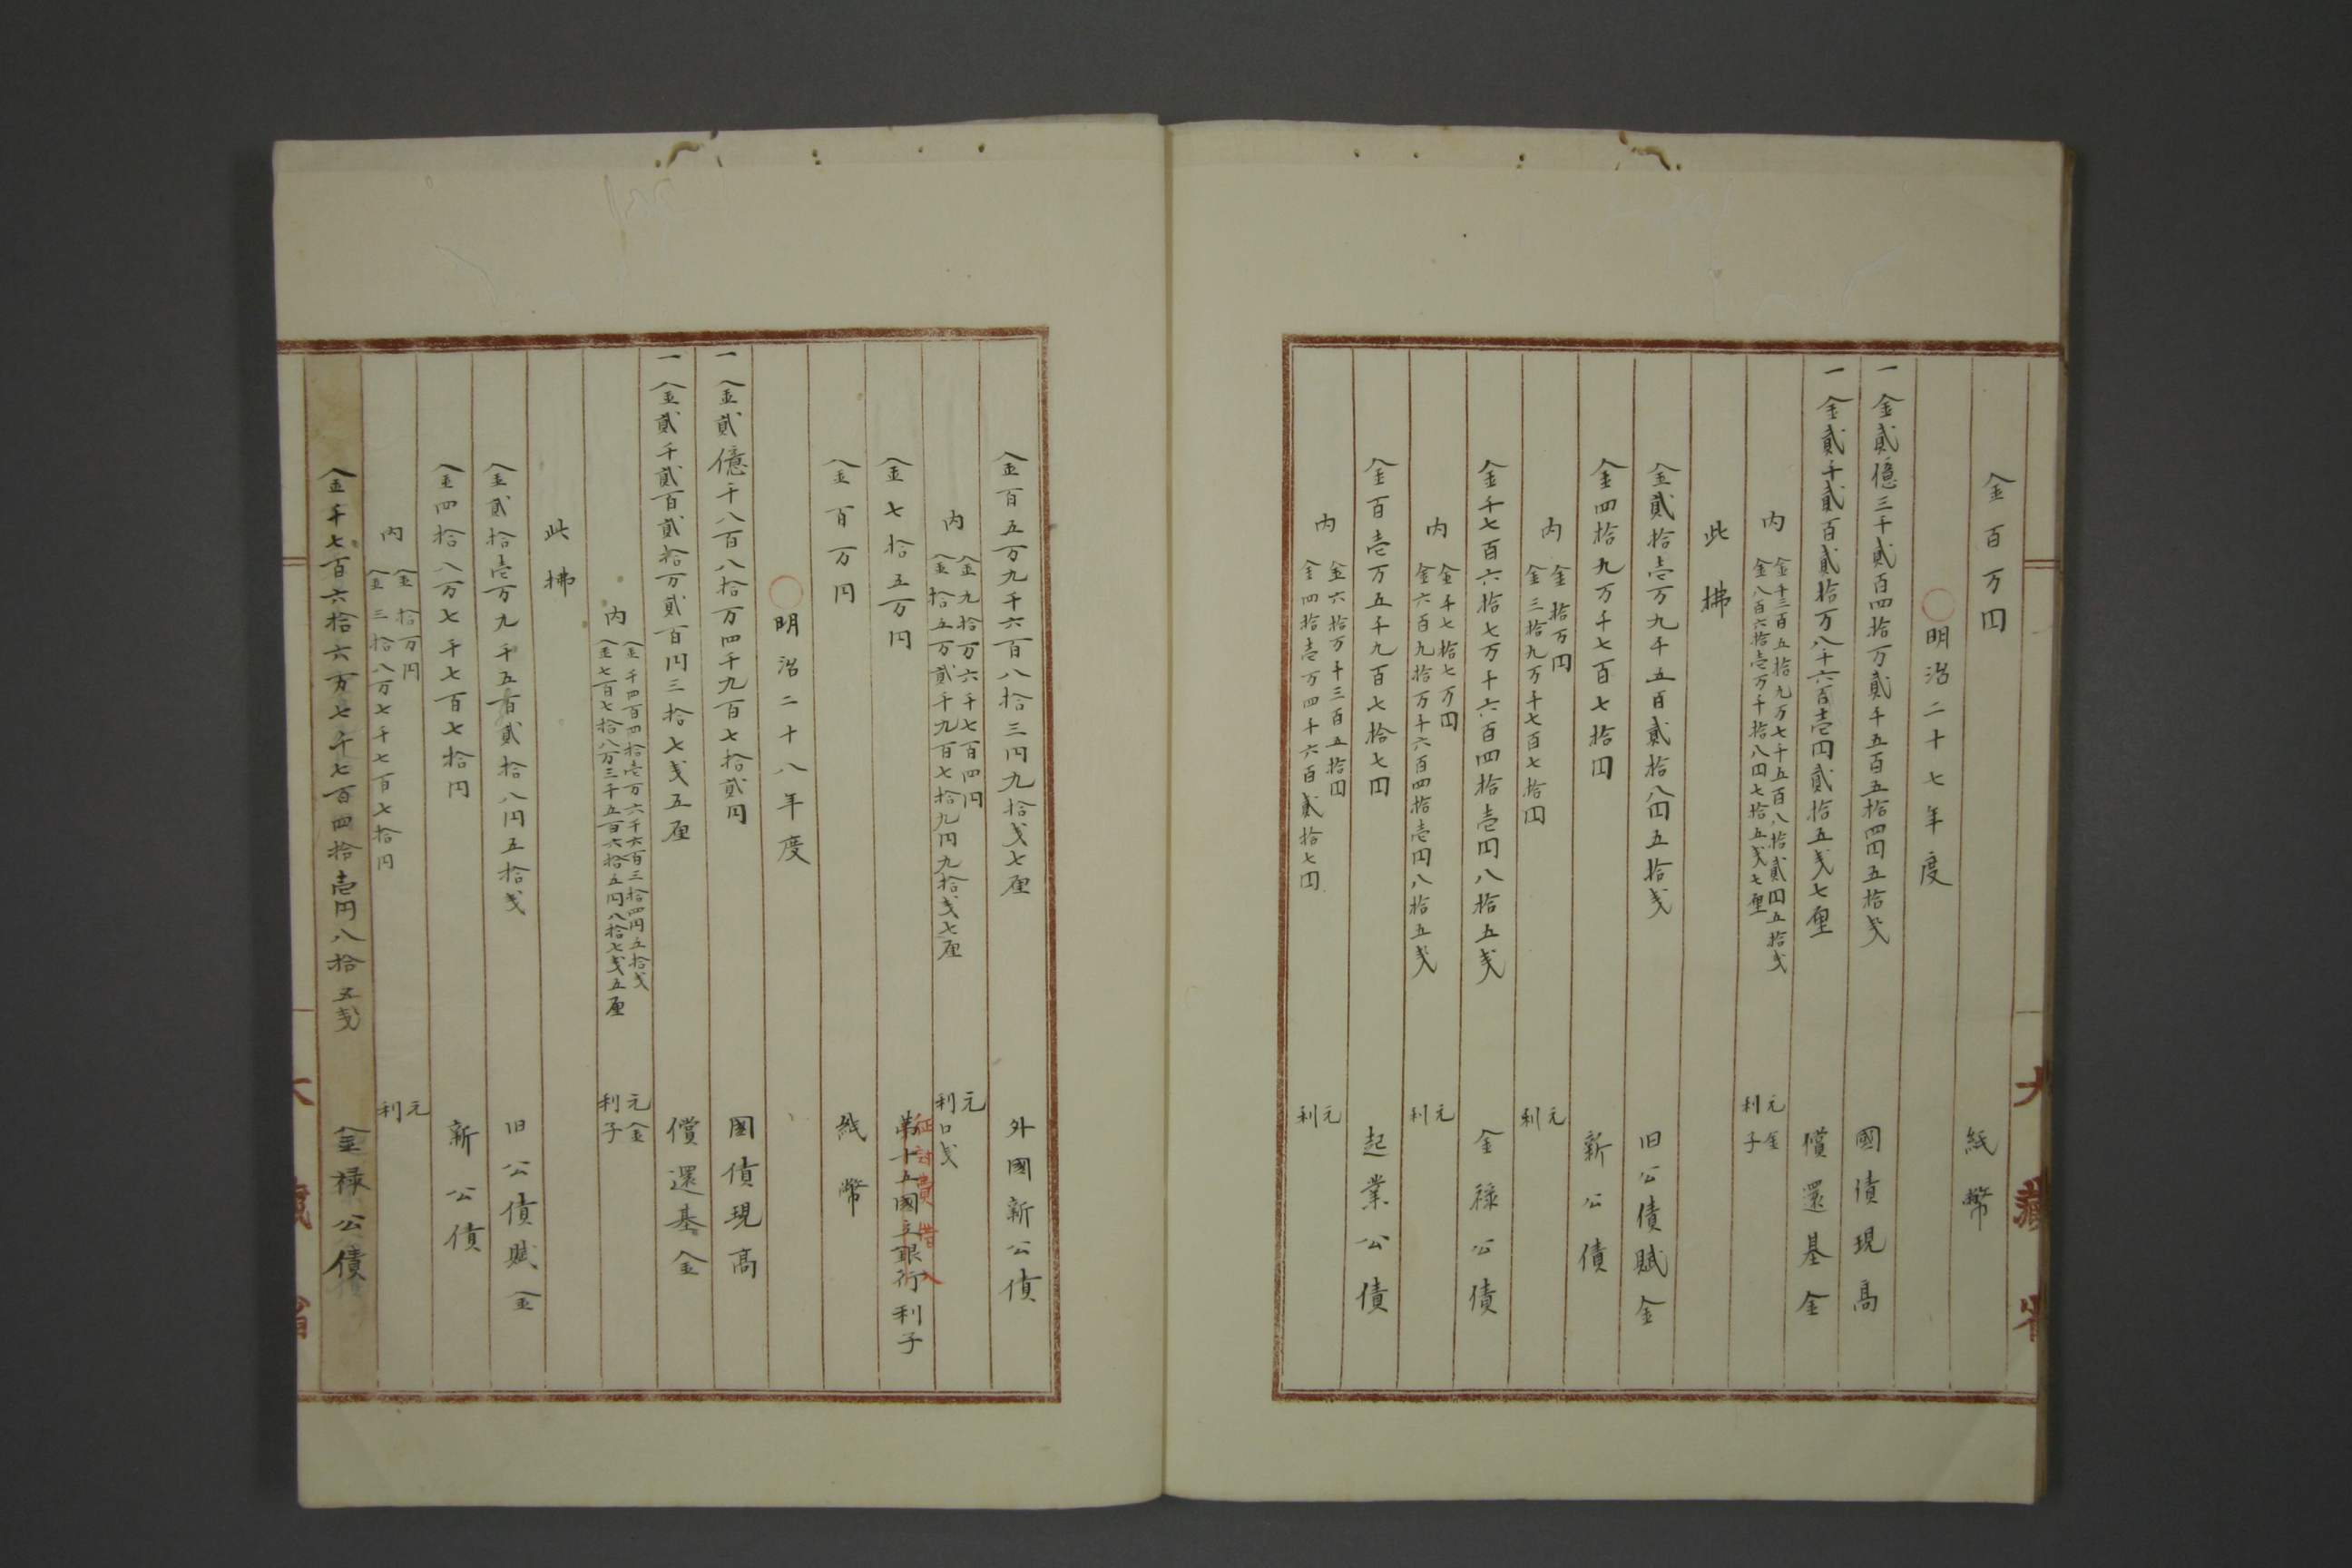 金百万円 紙幣
明治二十七年度
一金貳億三千貳百四拾万貳千五百五拾四円五拾戋 國債現高
一金貳千貳百貳拾万八千六百壱円貳拾五戋七厘 償還基金
内 金千三百五拾九万七千五百八拾貳円五拾戋 元金
金八百六拾壱万千拾八円七拾五戋七厘 利子
此拂
金貳拾壱万九千五百貳拾八円五拾戋 旧公債賦金
金四拾九万千七百七拾円 新公債
内 金拾万円 元
金三拾九万千七百七拾円 利
金千七百六拾七万千六百四拾壱円八拾五戋 金禄公債
内 金千七拾七万円 元
金六百九拾万千六百四拾壱円八拾五戋 利
金百壱万五千九百七拾七円 起業公債
内 金六拾万千三百五拾円 元
金四拾壱万四千六百貳拾七円 利
大藏省
金百五万九千六百八拾三円九拾戋七厘 外國新公債
内 金九拾万六千七百四円 元
金拾五万貳千九百七拾九円九拾戋七厘 利口戋
金七拾五万円 第十五國立銀行利子
征討費借入
金百万円 紙幣
明治二十八年度
一金貳億千八百八拾万四千九百七拾貳円 國債現高
一金貳千貳百貳拾万貳百円三拾七戋五厘 償還基金
内 金千四百四拾壱万六千六百三拾四円五拾戋 元金
金七百七拾八万三千五百六拾五円八拾七戋五厘 利子
此拂
金貳拾壱万九千五百貳拾八円五拾戋 旧公債賦金
金四拾八万七千七百七拾円 新公債
内 金拾万円 元
金三拾八万七千七百七拾円 利
金千七百六拾六万七千七百四拾壱円八拾五戋 金禄公債
大藏省